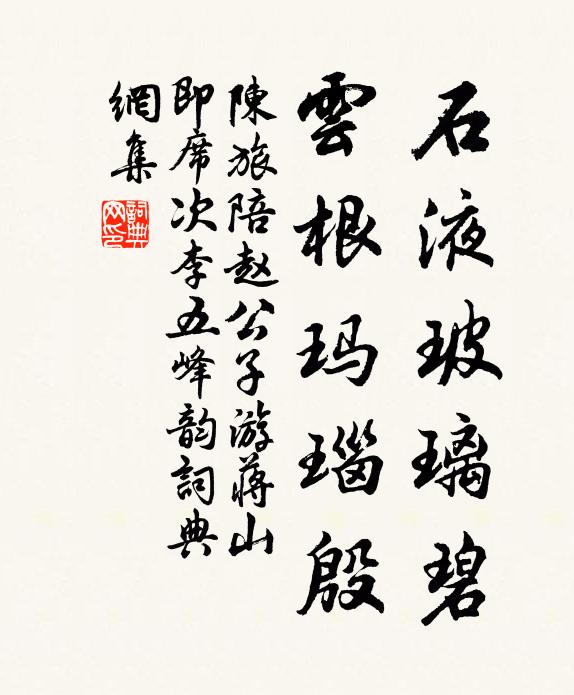 石液玻璃碧
雲根玛瑙殷
陳旅陪赵公子游蔣山
即席次李五峰韵詞典
網集
詞典
网印